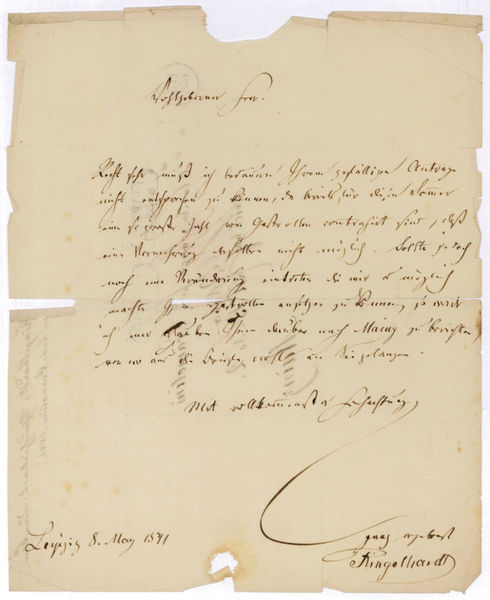 Wohlgeborner Herr.
Recht sehr muß ich bedauern Ihrem gefälligen Antrage
nicht entsprechen zu können, da bereits für diesen Sommer
eine so große Zahl von Gastrollen contrahirt sind, daß
eine Vermehrung derselben nicht möglich. Sollte jedoch
noch eine Veränderung eintreten die mir es möglich
machte Ihnen Gastrollen ansetzen zu können, so werde
ich mir erlauben Ihnen darüber nach Mainz zu berichten,
von wo aus die Briefe wohl an Sie gelangen.
Mit vollkommenster Hochachtung
Leipzig 8. May 1841
ganz ergebenst
Ringelhardt